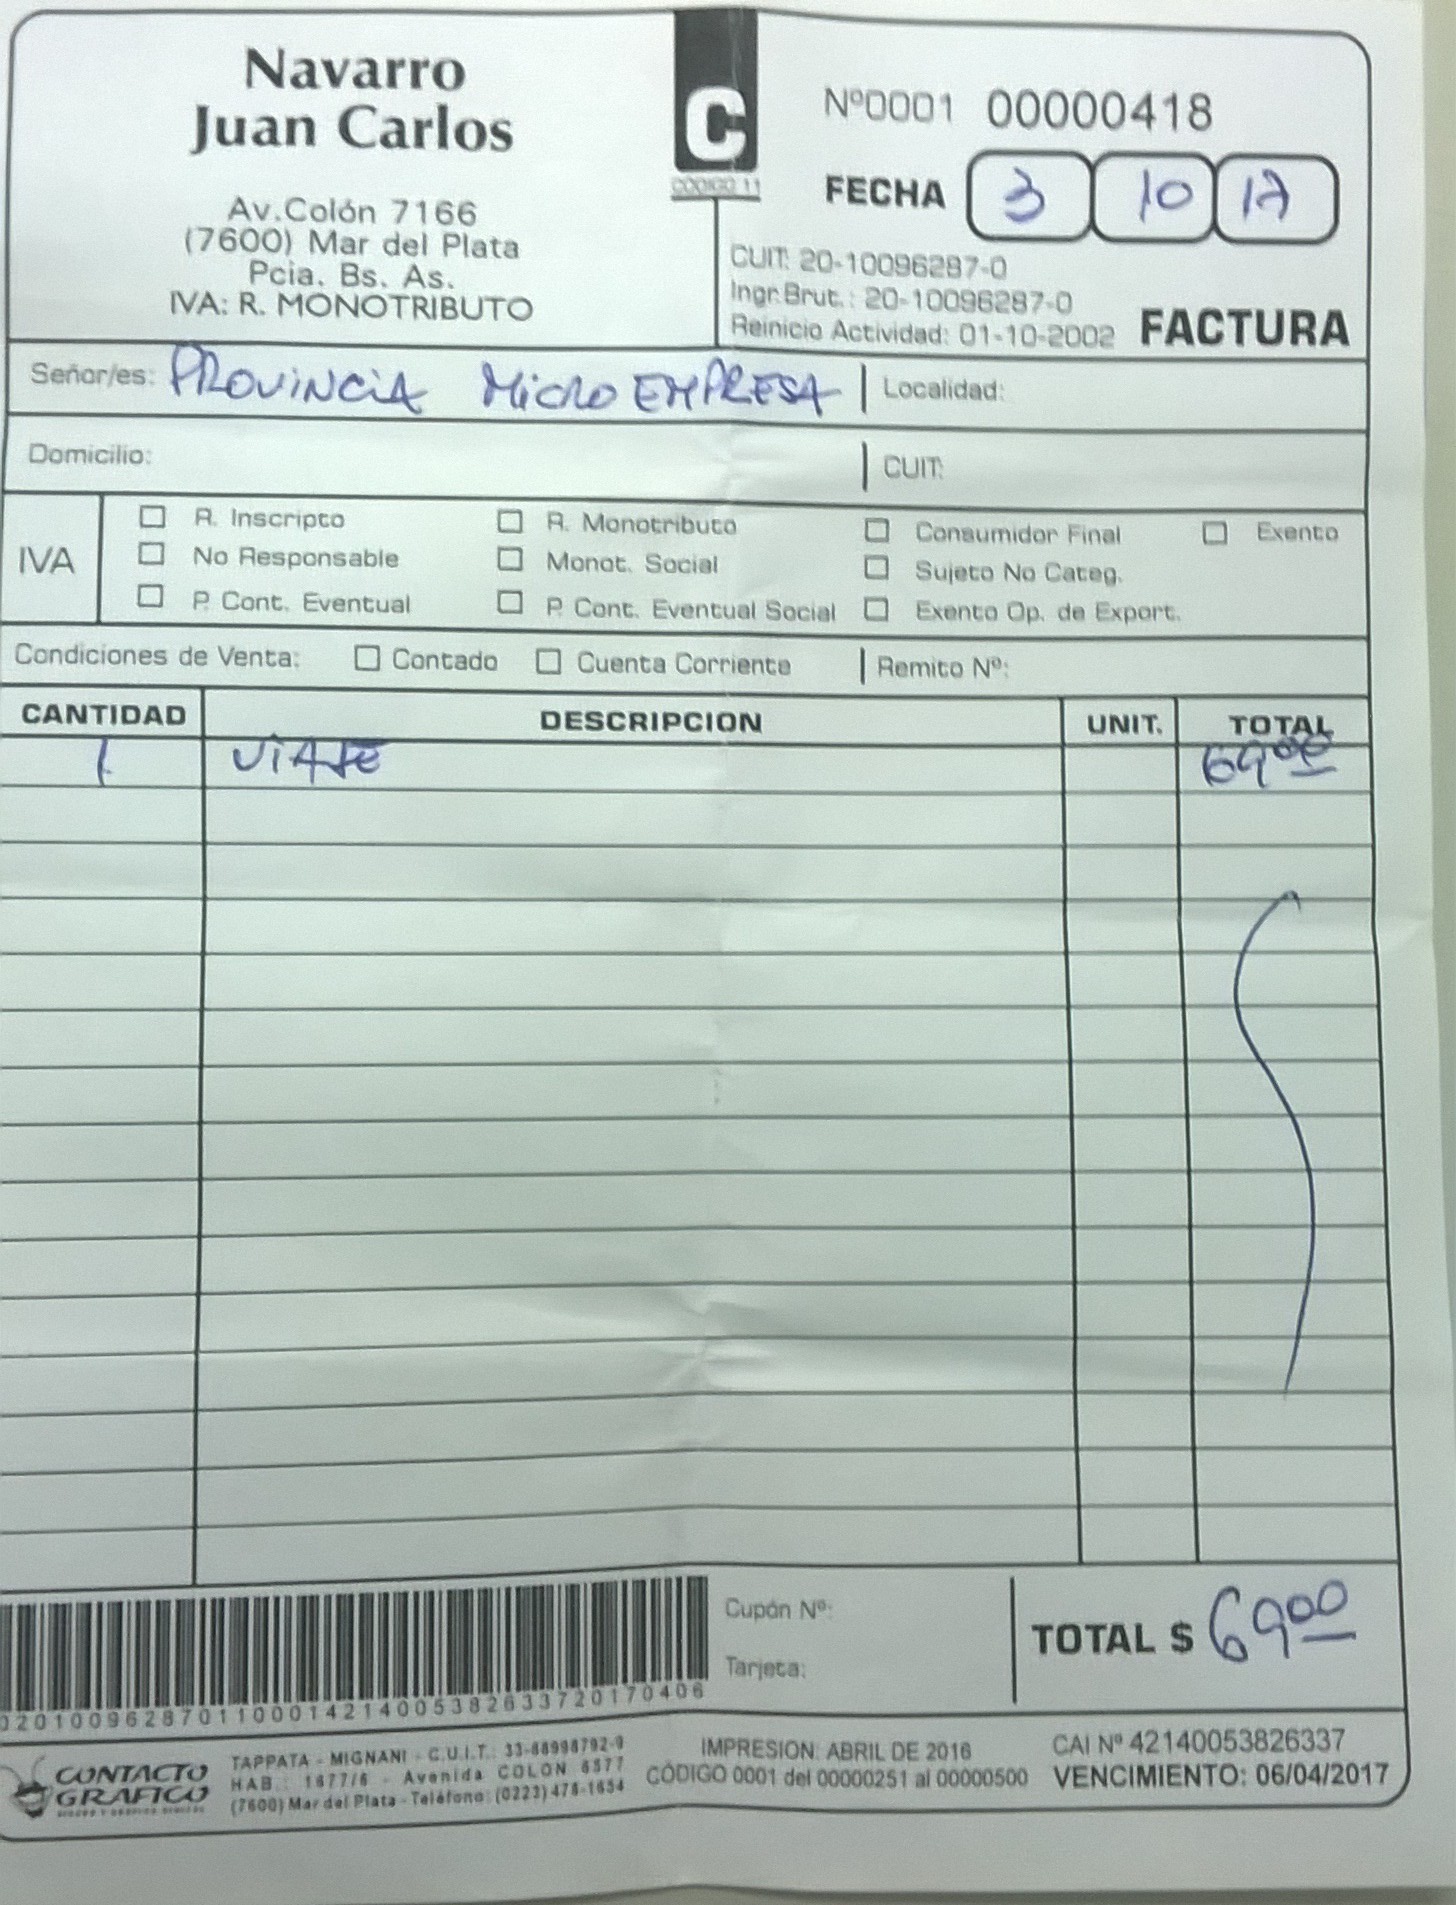 Navarro
Juan Carlos
Av.Colón 7166
(7600) Mar del Plata
Pcia. Bs. As.
IVA: R. MONOTRIBUTO
C
CODIGO 11
Nº0001 00000418
FECHA 3 10 17
CUIT: 20-10096287-0
Ingr.Brut.: 20-10096287-0
Reinicio Actividad: 01-10-2002
FACTURA
Señor/es: PROVINCIA MICRO EMPRESA
Localidad:
Domicilio:
CUIT:
IVA
R. Inscripto
R. Monotributo
Consumidor Final
Exento
No Responsable
Monot. Social
Sujeto No Categ.
P. Cont. Eventual
P. Cont. Eventual Social
Exento Op. de Export.
Condiciones de Venta: Contado Cuenta Corriente
Remito Nº:
CANTIDAD DESCRIPCION UNIT. TOTAL
1 VIAJE 6900
Cupón Nº:
Tarjeta:
TOTAL $ 6900
0201009628701100014214005382633720170406
CONTACTO
GRAFICO
TAPPATA - MIGNANI - C.U.I.T.:
HAB.: 1677/6 - Avenida COLON 6577
(7600) Mar del Plata - Teléfono: (0223) 476-1654
IMPRESION: ABRIL DE 2016
CÓDIGO 0001 del 00000251 al 00000500
CAI Nº 42140053826337
VENCIMIENTO: 06/04/2017